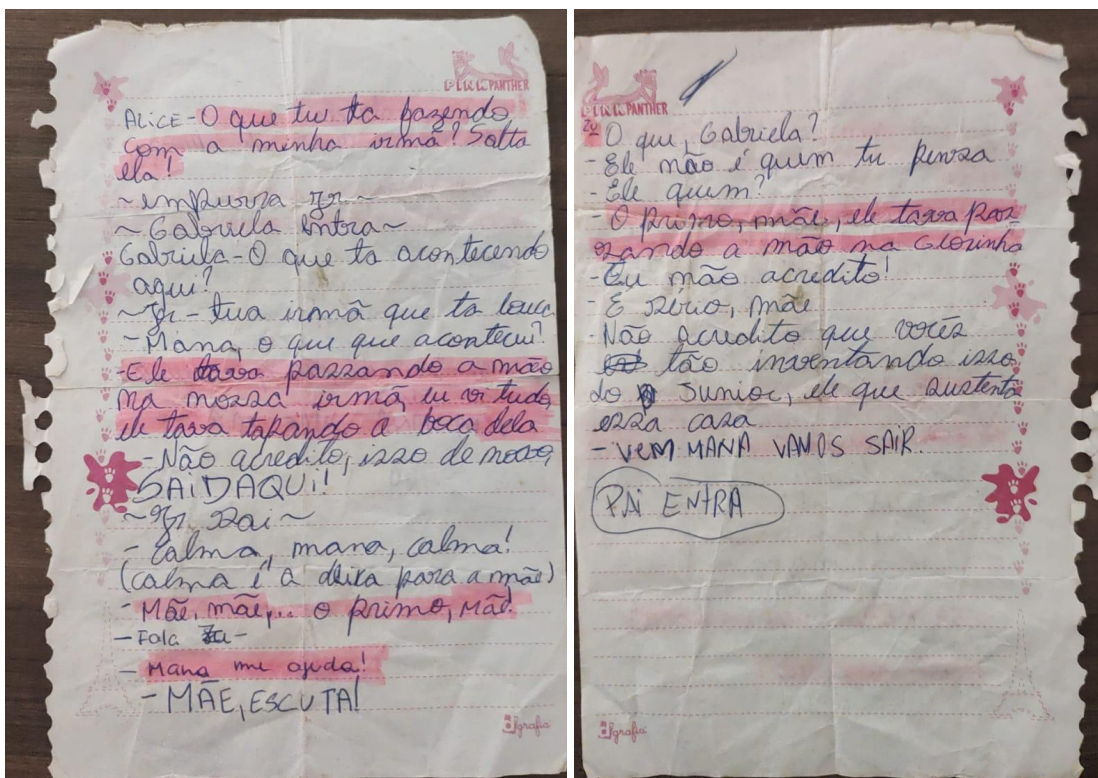 PINK PANTHER
ALICE - O que tu ta fazendo
com a minha irmã? Solta
ela!
~ empurra Jr ~
~ Gabriela Entra ~
Gabriela - O que ta acontecendo
aqui?
~ Jr - tua irmã que ta louca
- Mana, o que que aconteceu?
- Ele tava passando a mão
na nossa irmã, eu vi tudo,
ele tava tapando a boca dela
- Não acredito, isso de novo,
SAI DAQUI!
~ Jr Sai ~
- Calma, mana, calma!
(calma é a deixa para a mãe)
- Mãe, mãe,... o primo, Mãe!
- Fala Zu -
- Mana me ajuda!
- MÃE, ESCUTA!
grafia
PINK PANTHER
Zu - O que, Gabriela?
- Ele não é quem tu pensa
- Ele quem?
- O primo, mãe, ele tava pas-
sando a mão na Glorinha
- Eu não acredito!
- É sério, mãe
Não acredito que vocês
tão inventando isso
do Junior, ele que sustenta
essa casa
- VEM MANA VAMOS SAIR.
PAI ENTRA
grafia